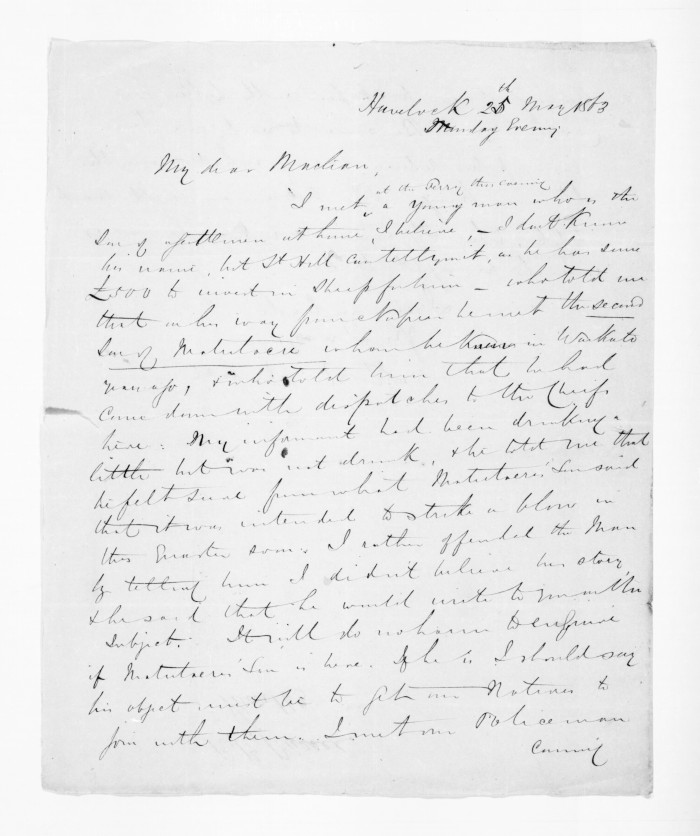 Havelock 25th May 1863
Monday Evening
My dear Maclean,
at the Ferry this evening
I met a young man who is the
Son of a gentleman at home, I believe, - I don't know
his name, but St Hill can tell you it, as he has some
£500 to invest in Sheep for him - who told me
that on his way from Napier he met the second
Son of Matutaere whom he knew in Waikato
years ago, & who told him that he had
come down with dispatches to the Chiefs
here: My informant had been drinking a
little but was not drunk, & he told me that
he felt sure from what Matutaere's Son said
that it was intended to strike a blow in
this Quarter soon. I rather offended the Man
by telling him I didn't believe his story,
& he said that he would write to you on the
Subject. It will do no harm to enquire
if Matutaere's Son is here. If he is I should say
his object must be to get our Natives to
join with them. I met our Policeman
coming